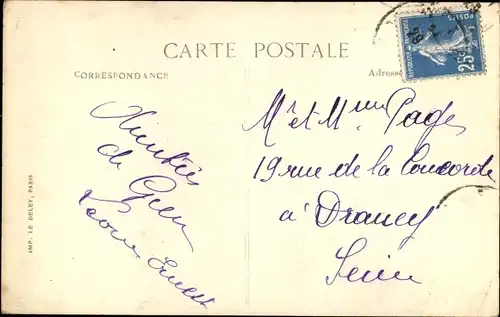 CARTE POSTALE
CORRESPONDANCE
Adresse
POSTES
25c
Amitiés
de
Mr et Mme Page
19 rue de la Concorde
à Drancy
Seine
IMP. LE DELEY, PARIS